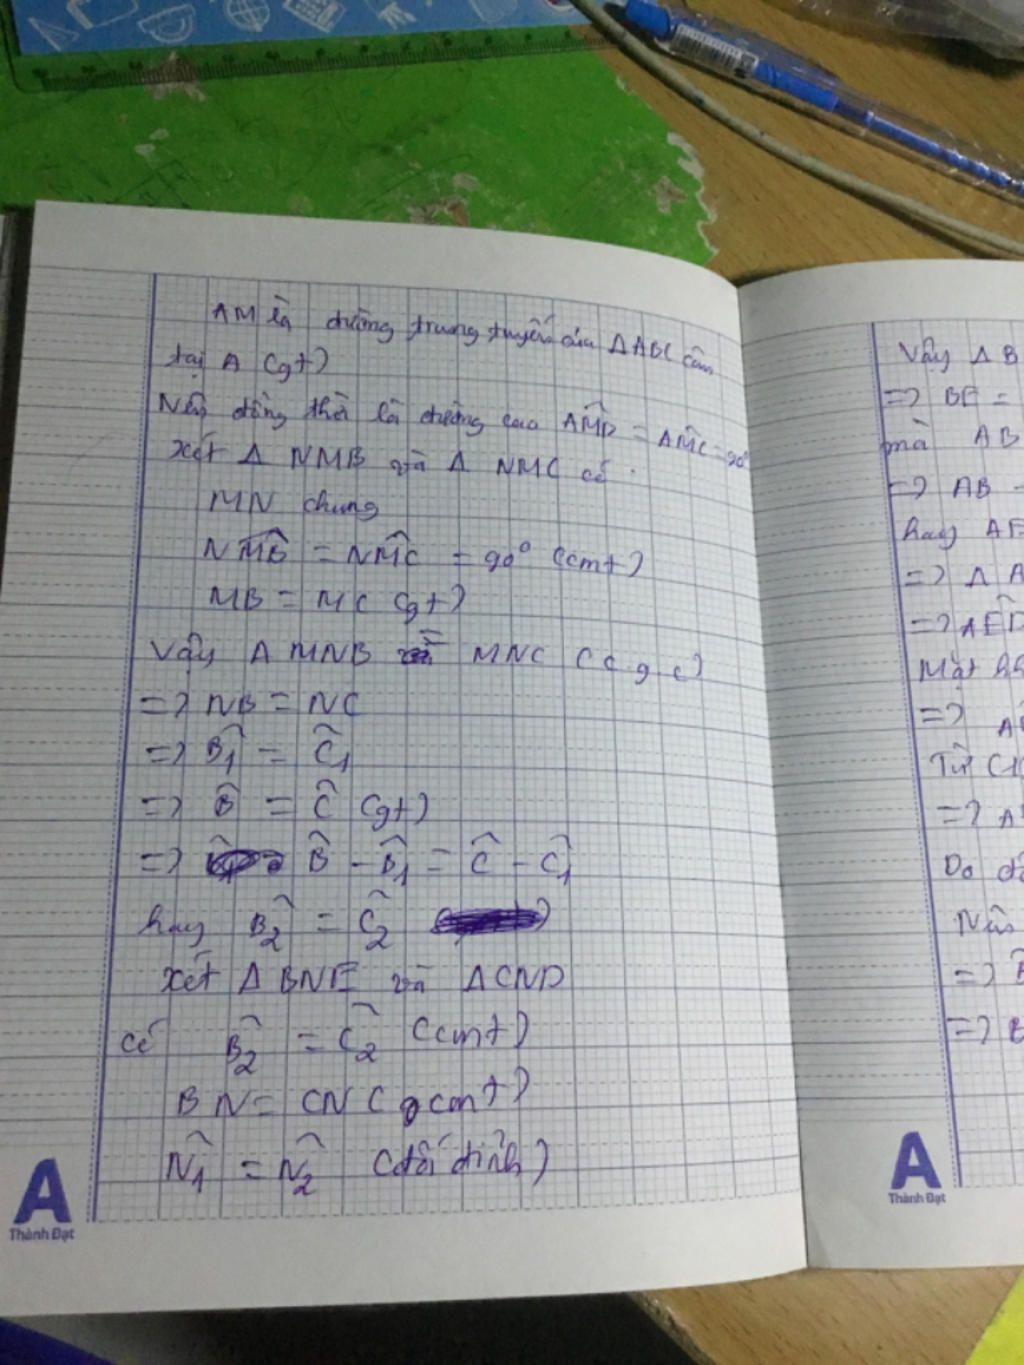 AM là đường trung tuyến của ΔABC cân
tại A (gt)
Nên đồng thời là đường cao AM̂B = AM̂C = 90°
Xét Δ NMB và Δ NMC có :
MN chung
NM̂B = NM̂C = 90° (cmt)
MB = MC (gt)
Vậy Δ MNB = MNC (c g c)
=> NB = NC
=> B̂1 = Ĉ1
=> B̂ = Ĉ (gt)
=> B̂ - B̂1 = Ĉ - Ĉ1
hay B̂2 = Ĉ2
Xét Δ BNE và ΔCND
có B̂2 = Ĉ2 (cmt)
BN = CN (cmt)
N̂1 = N̂2 (đối đỉnh)
A
Thành Đạt
Vậy Δ B
=> BE =
mà AB
=> AB -
hay AE
=> Δ A
=> AÊD
Mặt
=>
Từ (1)
=> A
Do đó
Nên
=>
=> B
A
Thành Đạt